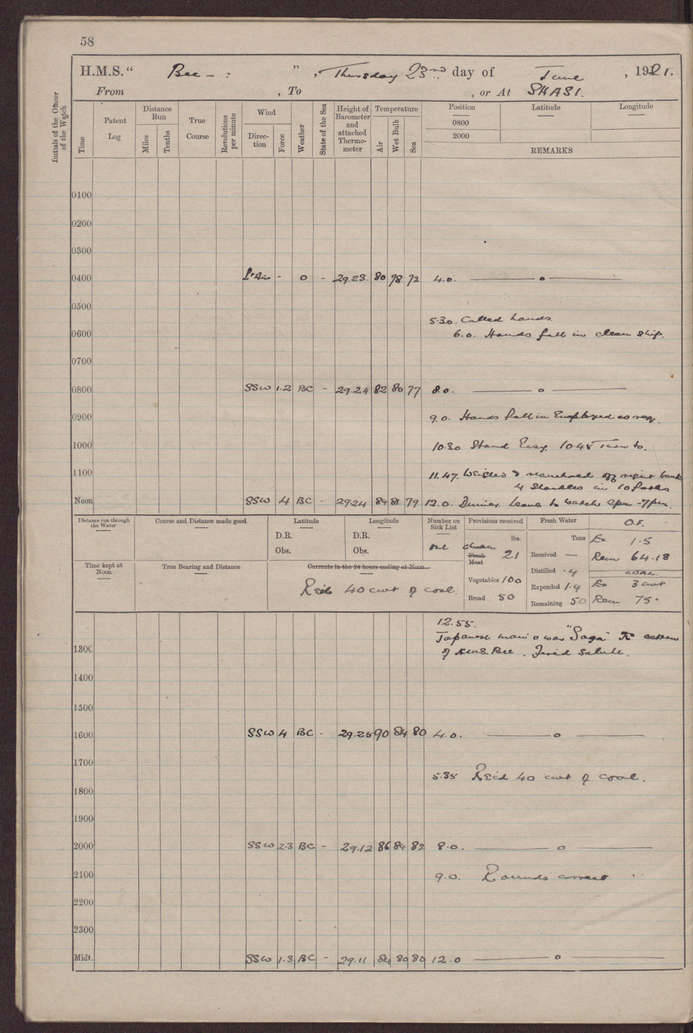 58
H.M.S. “ Bee - : ” , Thursday 23rd day of June , 1921.
From , To , or At SHASI.
Initials of the Officer of the Watch
Time
Patent Log
Distance Run
Miles
Tenths
True Course
Revolutions per minute
Wind
Direction
Force
Weather
State of the Sea
Height of Barometer and attached Thermometer
Temperature
Air
Wet Bulb
Sea
Position Latitude Longitude
0800
2000
REMARKS
0100
0200
0300
0400 Lt Air - O - 29.23 80 78 72 4.0. — o —
0500
5.30. Called hands
0600 6.0. Hands fall in clean ship.
0700
0800 SSW 1.2 BC - 29.24 82 80 77 8.0. — o —
0900 9.0. Hands fall in Employed as req.
1000 10.30 Stand Easy 10.45 Turn to.
1100 11.47. Weighed & anchored off right bank
4 Shackles in 10 faths
Noon SSW 4 BC - 29.24 84 81 79 12.0. Dinner Leave to watch 1pm - 7pm.
Distance run through the Water
Course and Distance made good
Latitude
D.R.
Obs.
Longitude
D.R.
Obs.
Number on Sick List
one
Provisions received
lbs.
Fresh Meat 21
Vegetables 100
Bread 50
Fresh Water
Tons
Received —
Distilled .4
Expended 1.4
Remaining 50
O.F.
Ex 1.5
Rem 64.18
COAL
Ex 3 cwt
Rem 75.
Time kept at Noon
True Bearing and Distance
Currents in the 24 hours ending at Noon.
Recd 40 cwt of coal
12.55.
Japanese man o war "Saga"
of H.M.S. Bee. Fired Salute.
1300
1400
1500
1600 SSW 4 BC - 29.25 90 84 80 4.0. — o —
1700
5.35 Recd 40 cwt of coal.
1800
1900
2000 SSW 2.3 BC - 29.12 86 84 82 8.0. — o —
2100 9.0. Rounds correct
2200
2300
Midt. SSW 1.3 BC - 29.11 84 80 80 12.0 — o —